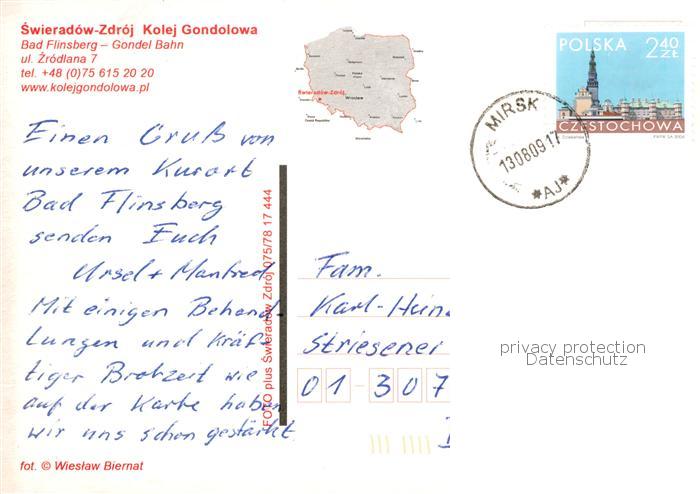 Świeradów-Zdrój Kolej Gondolowa
Bad Flinsberg – Gondel Bahn
ul. Źródlana 7
tel. +48 (0)75 615 20 20
www.kolejgondolowa.pl
Einen Gruß von
unserem Kurort
Bad Flinsberg
senden Euch
Ursel + Manfred
Mit einigen Behand-
lungen und kräf-
tiger Brotzeit wie
auf der Karte haben
wir uns schon gestärkt
fot. © Wiesław Biernat
FOTO plus Świeradów Zdrój 075/78 17 444
Świeradów-Zdrój
Wrocław
POLSKA 2,40 ZŁ
CZĘSTOCHOWA
MIRSK
130809 17
*AJ*
Fam.
Karl-Hein
Striesener
01-307
privacy protection
Datenschutz